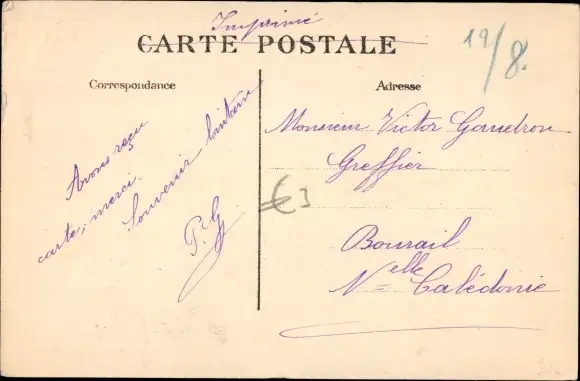 Imprimé
CARTE POSTALE
12/8.
Correspondance
Adresse
Avons reçu
carte, merci.
Souvenir lointain
P. G
€3
Monsieur Victor Gaudron
Greffier
Bourail
Nelle Calédonie